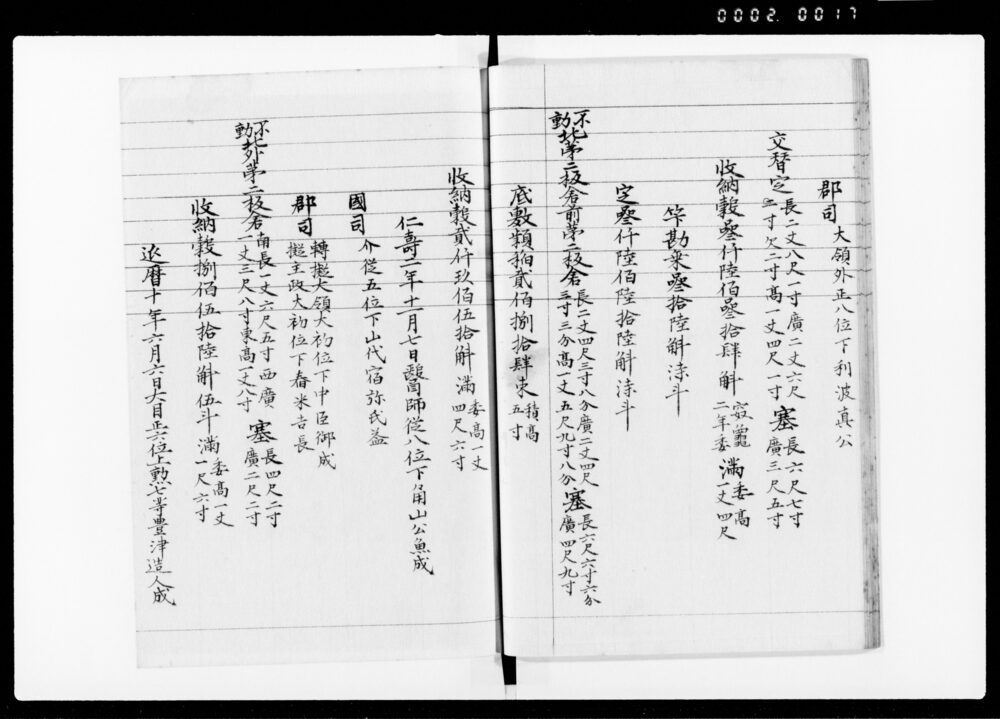 0002.0017
郡司 大領外正八位下利波真公
交替定 長二丈八尺一寸廣二丈六尺
二寸欠二寸高一丈四尺一寸 塞 長六尺七寸
廣三尺五寸
收納穀叄仟陸佰叄拾肆斛 寳龜
二年委 滿 委高
一丈四尺
竿勘乗叄拾陸斛漆斗
定叄仟陸佰陸拾陸斛漆斗
不
動 北第二板倉前第二板倉 長二丈四尺三寸八分廣二丈四尺
三寸三分高一丈五尺九寸八分 塞 長六尺六寸六分
廣四尺九寸
底敷穎稲貳佰捌拾肆束 積高
五寸
收納穀貳仟玖佰伍拾斛 滿 委高一丈
四尺六寸
仁壽二年十一月七日醫師従八位下角山公魚成
國司 介従五位下山代宿祢氏益
郡司 轉擬大領大初位下中臣御成
擬主政大初位下舂米吉長
不
動 北外第二板倉 南長一丈六尺五寸西廣
一丈三尺八寸東高一丈八寸 塞 長四尺二寸
廣二尺二寸
收納穀捌佰伍拾陸斛伍斗 滿 委高一丈
一尺六寸
延暦十年六月六日大目正六位上勲七等豊津造人成